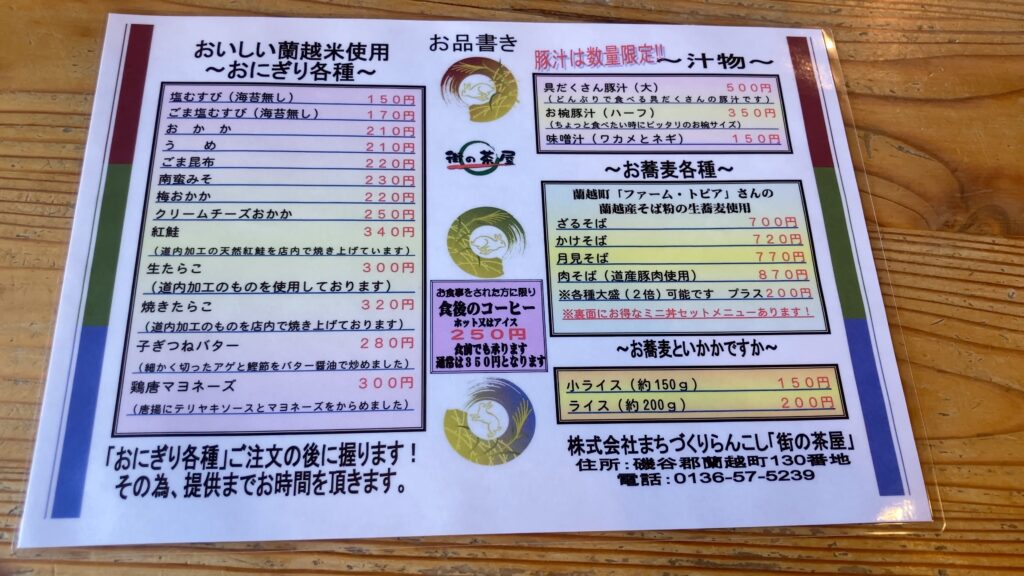 お品書き
おいしい蘭越米使用
～おにぎり各種～
塩むすび（海苔無し） 150円
ごま塩むすび（海苔無し） 170円
おかか 210円
うめ 210円
ごま昆布 220円
南蛮みそ 230円
梅おかか 220円
クリームチーズおかか 250円
紅鮭 340円
（道内加工の天然紅鮭を店内で焼き上げています）
生たらこ 300円
（道内加工のものを使用しております）
焼きたらこ 320円
（道内加工のものを店内で焼き上げております）
子ぎつねバター 280円
（細かく切ったアゲと鰹節をバター醤油で炒めました）
鶏唐マヨネーズ 300円
（唐揚にテリヤキソースとマヨネーズをからめました）
「おにぎり各種」ご注文の後に握ります！
その為、提供までお時間を頂きます。
街の茶屋
お食事をされた方に限り
食後のコーヒー
ホット又はアイス
250円
食前でも承ります
通常は350円となります
豚汁は数量限定!!
～汁物～
具だくさん豚汁（大） 500円
（どんぶりで食べる具だくさんの豚汁です）
お椀豚汁（ハーフ） 350円
（ちょっと食べたい時にピッタリのお椀サイズ）
味噌汁（ワカメとネギ） 150円
～お蕎麦各種～
蘭越町「ファーム・トピア」さんの
蘭越産そば粉の生蕎麦使用
ざるそば 700円
かけそば 720円
月見そば 770円
肉そば（道産豚肉使用） 870円
※各種大盛（2倍）可能です プラス200円
※裏面にお得なミニ丼セットメニューあります！
～お蕎麦といかかですか～
小ライス（約150ｇ） 150円
ライス（約200ｇ） 200円
株式会社まちづくりらんこし「街の茶屋」
住所：磯谷郡蘭越町130番地
電話：0136-57-5239